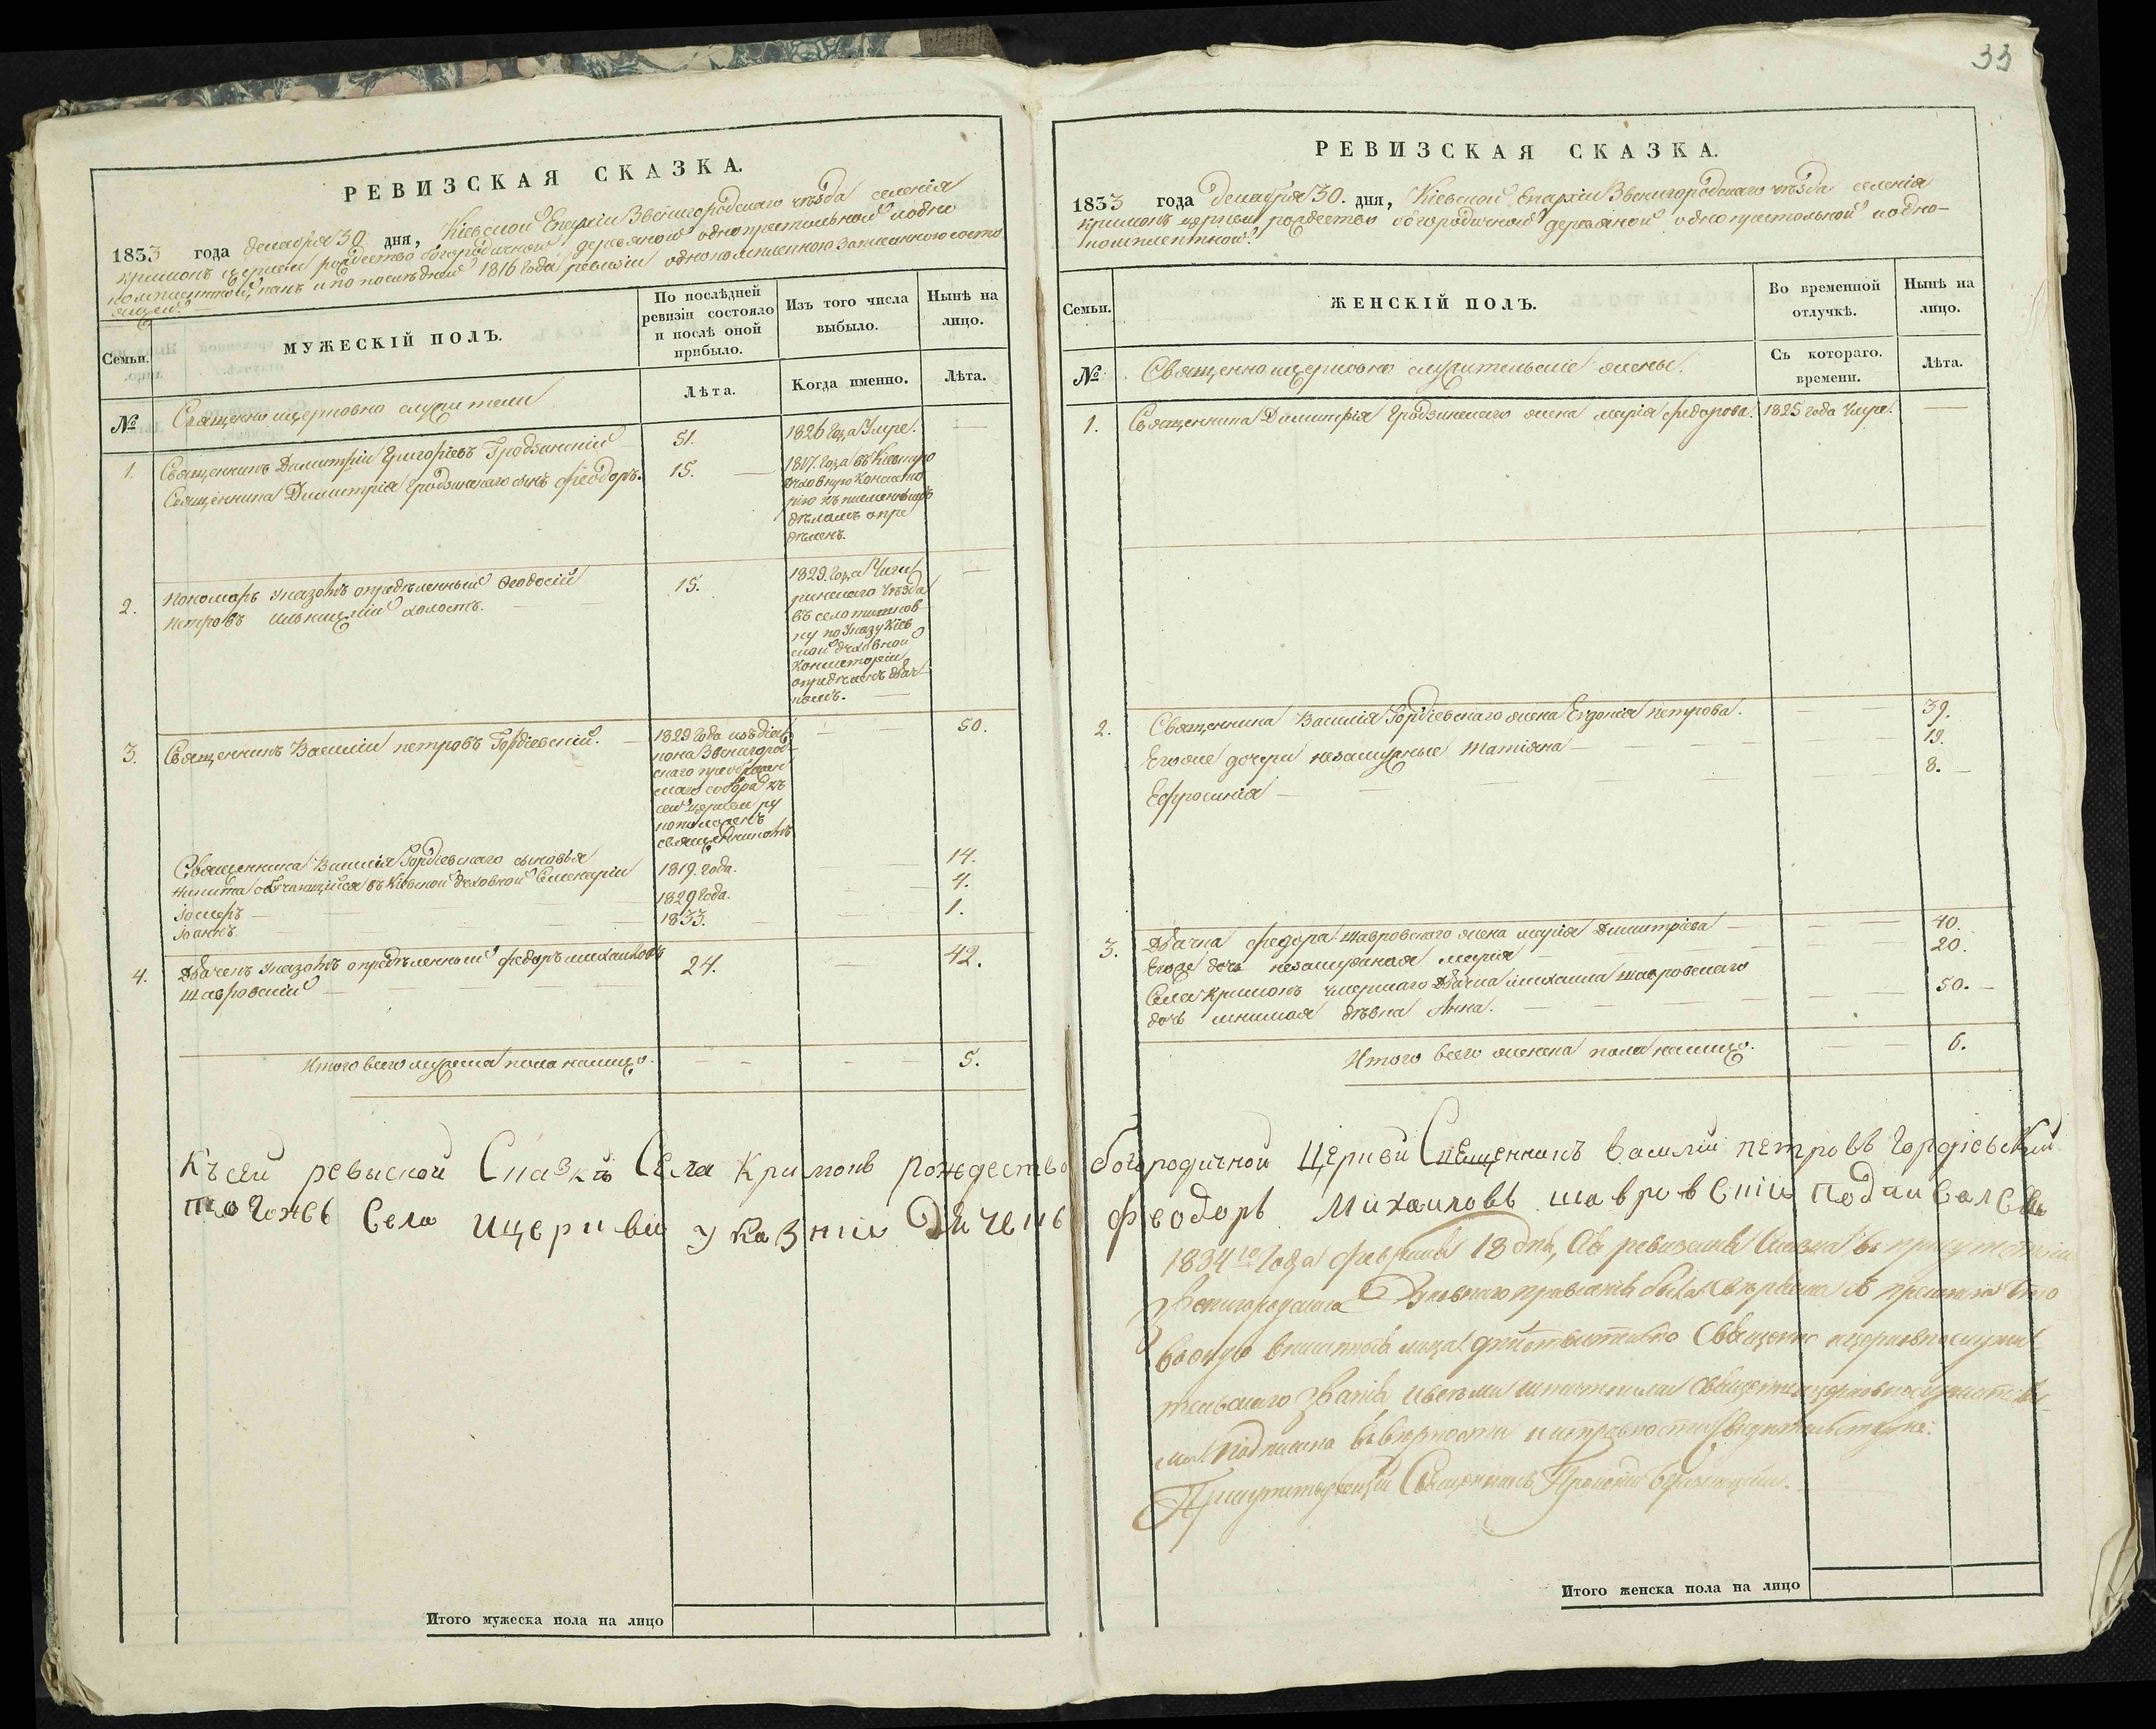 33
РЕВИЗСКАЯ СКАЗКА.
1833 года декабря 30 дня, Кіевской Епархіи Звенигородскаго уѣзда селенія
кримокъ церкви рождество богородичной деревяной однопрестольной иодно
комплектной, какъ и по послѣдней 1816 года ревизіи однокомплектною записанною состо
ящей.
Семьи.
МУЖЕСКІЙ ПОЛЪ.
По послѣдней
ревизіи состояло
и послѣ оной
прибыло.
Изъ того числа
выбыло.
Нынѣ на
лицо.
№
Священно церковно служители
Лѣта.
Когда именно.
Лѣта.
1. Священникъ Димитрій Григоріевъ Гродзинскій 51. 1826 года Умре.
Священника Димитрія Гродзинскаго сынъ феодоръ. 15. 1817. года въ Кіевскую
духовную Консисто
рію къ писменнымъ
дѣламъ опре
дѣленъ.
2. Пономарь указомъ опредѣленный Феодосій 15. 1829. года Чиги
петровъ холостъ. ринскаго уѣзда
въ село
ну по Указу Кіев
ской духовной
Консисторіи
опредѣленъ дьяч
комъ.
3. Священникъ Василій петровъ Гордіевскій. 1829 года изъ діа 50.
кона Звенигород
скаго преображен
скаго собора къ
сей церкви ру
коположенъ
священникомъ
Священника Василія Гордіевскаго сыновья
Никита обучающійся въ Кіевской духовной Семинаріи 1819. года. 14.
Іосифъ 1829 года. 4.
Іоаннъ 1833. 1.
4. Дьячекъ указомъ опредѣленный федоръ михайловъ 24. 42.
шавровскій
Итого всего мужеска пола налицо. 5.
Итого мужеска пола на лицо
РЕВИЗСКАЯ СКАЗКА.
1833 года декабря 30. дня, Кіевской Епархіи Звенигородскаго уѣзда селенія
кримокъ церкви рождество богородичной деревяной однопрестольной иодно-
комплектной.
Семьи.
ЖЕНСКІЙ ПОЛЪ.
Во временной
отлучкѣ.
Нынѣ на
лицо.
№
Священно церковно служительскіе жены.
Съ котораго.
времени.
Лѣта.
1. Священника Димитрія Гродзинскаго жена марія федорова. 1825 года Умре.
2. Священника Василія Гордіевскаго жена Евдокія петрова. 39.
Егоже дочери незамужные Татіяна 19.
Ефросинія 8.
3. Дьячка федора шавровскаго жена марія Димитріева 40.
Егоже дочь незамужная марія 20.
Села Кримокъ умершаго Дьячка михаила шавровскаго
дочь дѣвка Анна. 50.
Итого всего женска пола налицо. 6.
Къ сей ревыской Сказкѣ Села Кримокъ рождество богородичной Церкви Священникъ Василий петровъ Гордіевский
тоГожъ Села ицеркви указній Дячекъ феодоръ Михаиловъ шавровскій подписалсь
1834го Года февраля 18 дня, сія ревизская Сказка въ присутствіи
Звенигородскаго Духовнаго правленія была свѣрена
въ оную лица дѣйствительно Священно ицерковнослужи
тельскаго Званія
подписана въ вѣрности и исправности
Присутствующій Священникъ
Итого женска пола на лицо